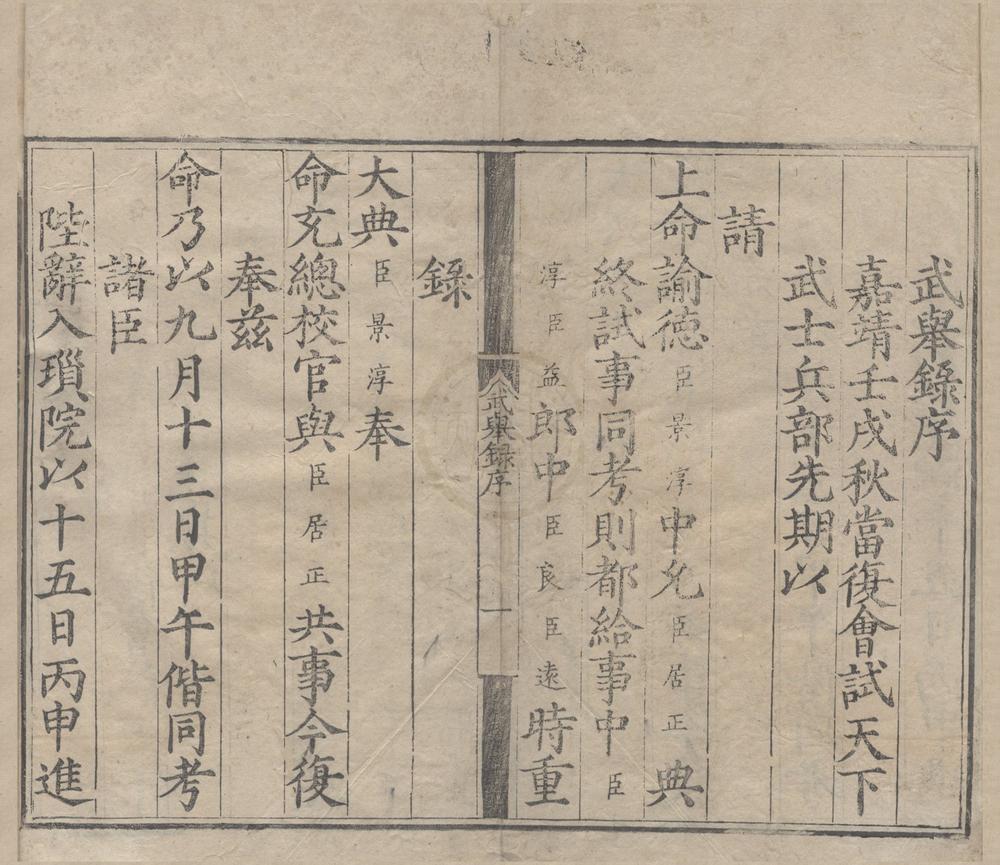 武舉錄序
嘉靖壬戌秋當復會試天下
武士兵部先期以
請
上命諭德臣景淳中允臣居正典
終試事同考則都給事中臣
淳臣益郎中臣良臣遠時重
武舉錄序 一
錄
大典臣景淳奉
命充總校官與臣居正共事今復
奉茲
命乃以九月十三日甲午偕同考
諸臣
陛辭入瑣院以十五日丙申進